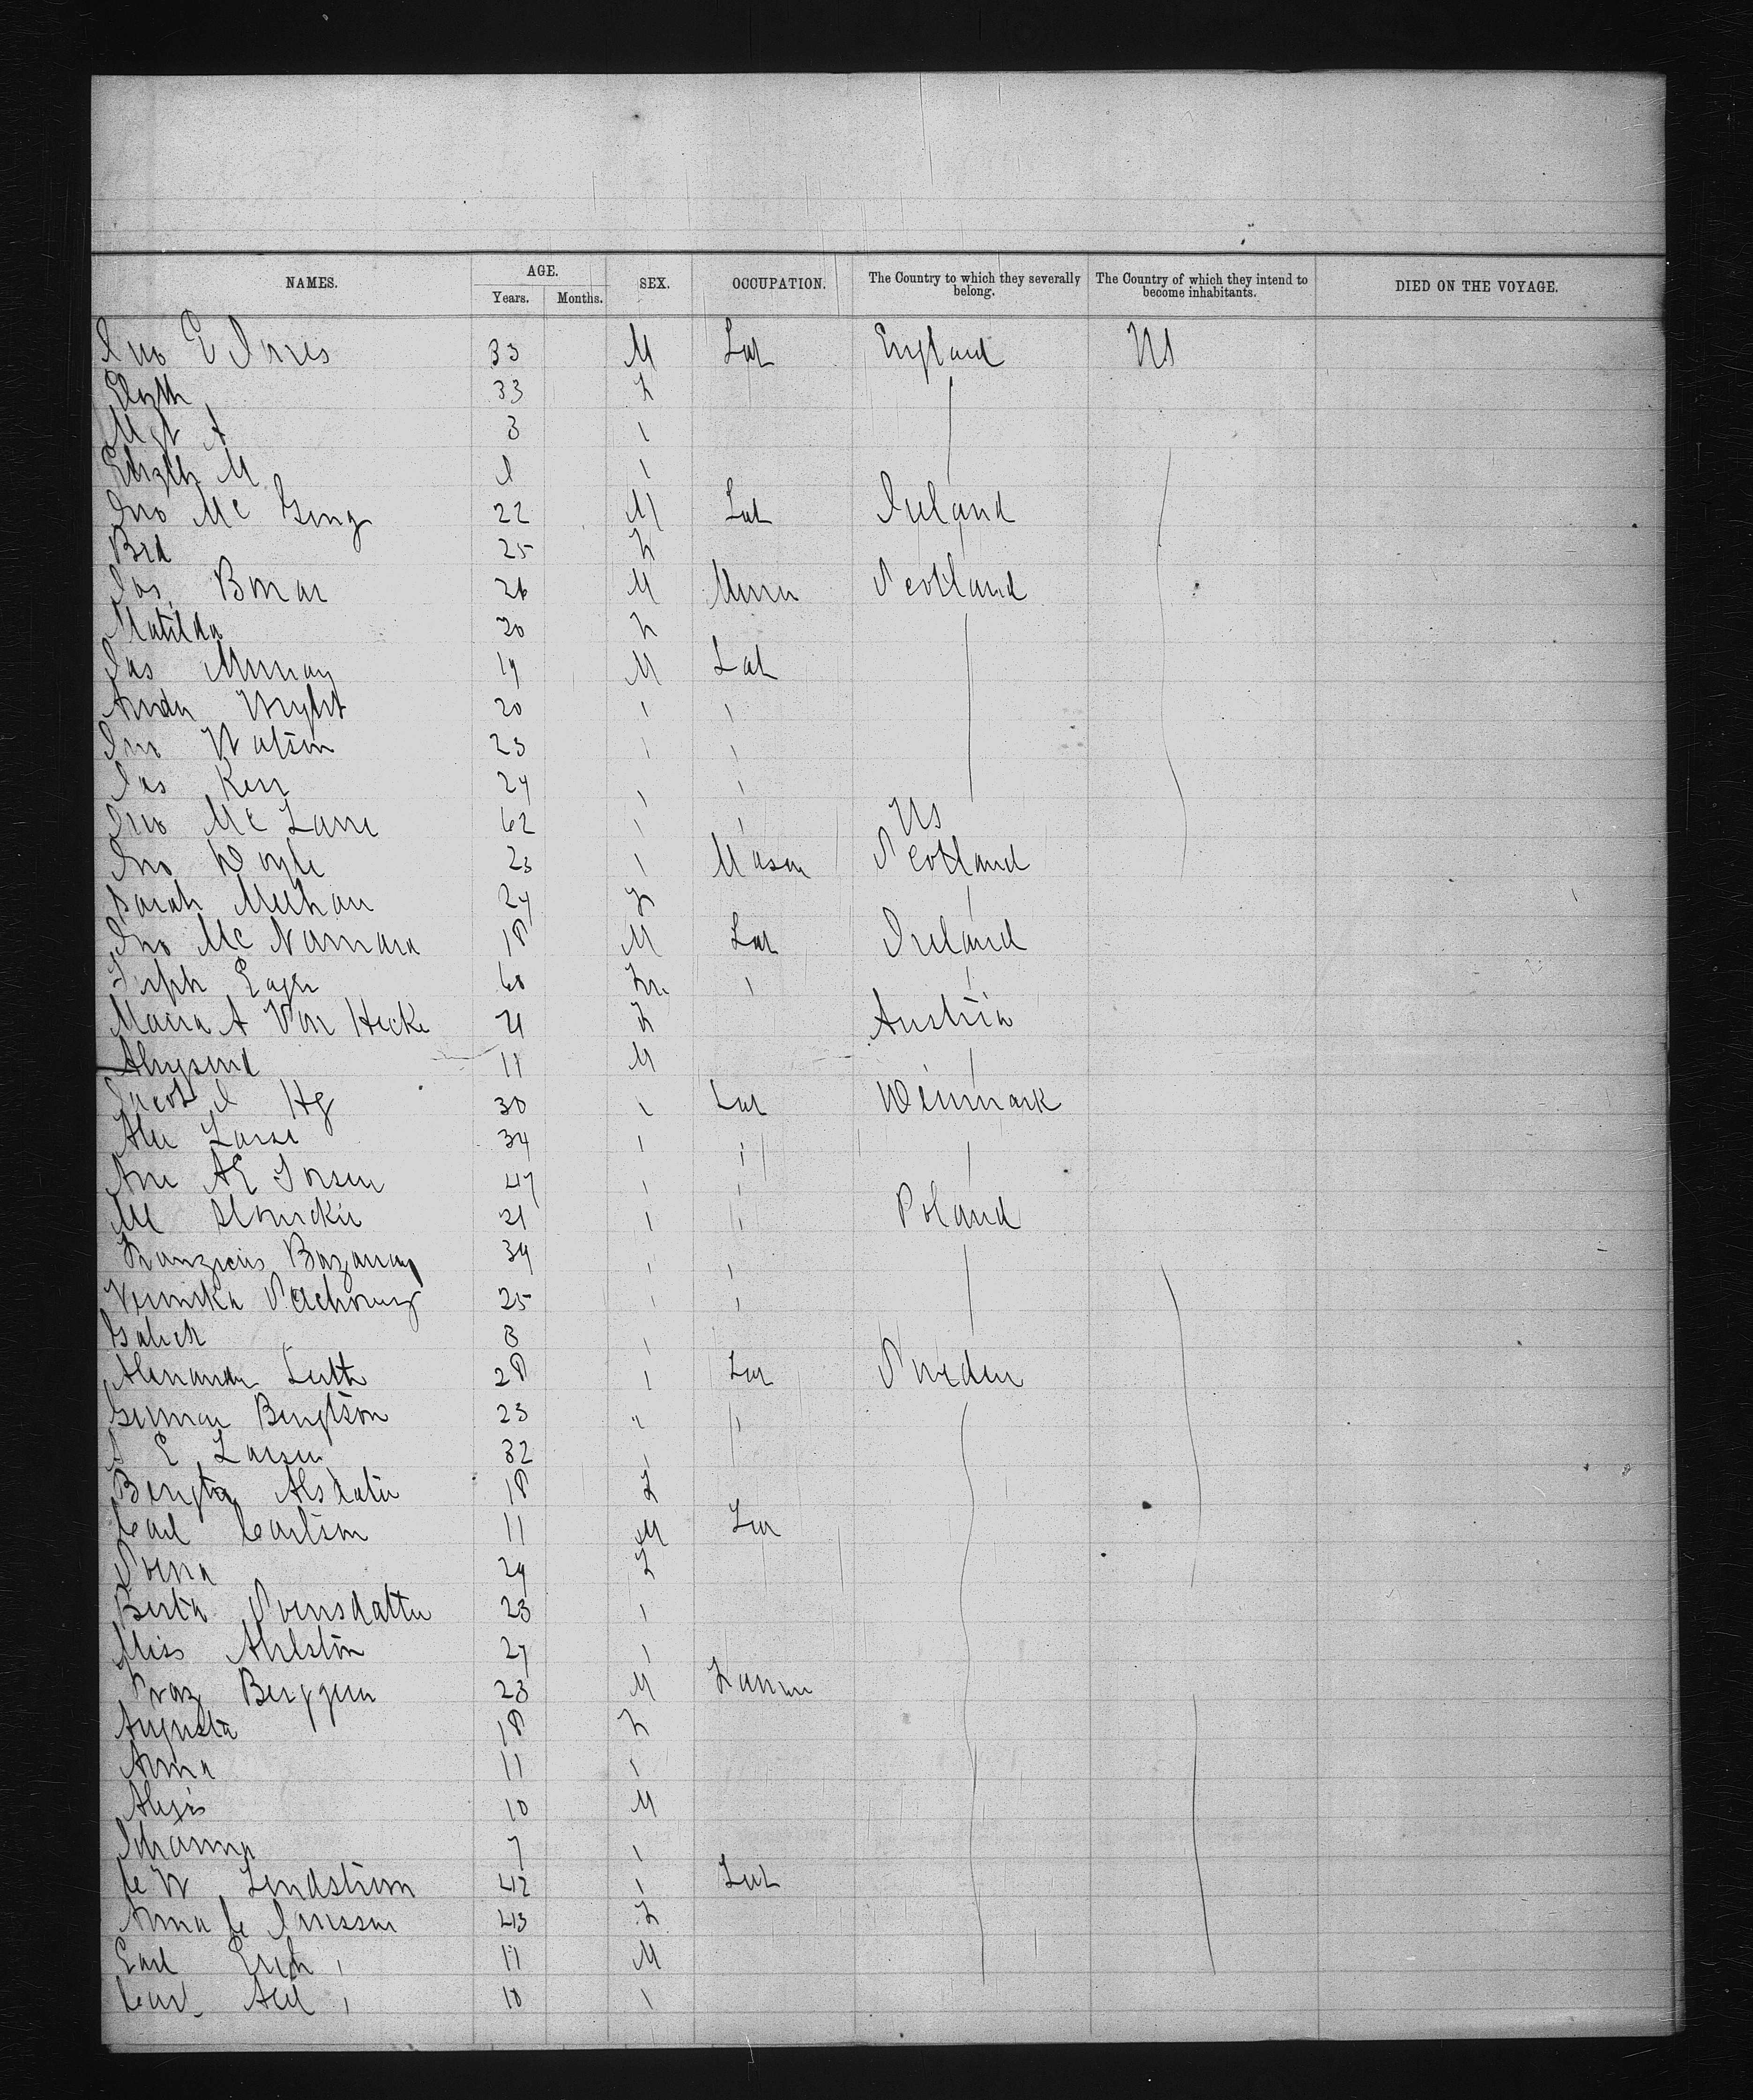 NAMES. AGE. SEX. OCCUPATION. The Country to which they severally belong. The Country of which they intend to become inhabitants. DIED ON THE VOYAGE.
Years. Months.
Jno E Jones 33 M Lab England US
Elizth 33 F
Mgt A 3 "
Elizth M 1 "
Jno Mc Ging 22 M Lab Ireland
Brd 25 F
Jas Bonar 26 M Miner Scotland
Matilda 20 F
Jas Murray 19 M Lab
Andw Wright 20 " "
Jno Watson 23 " "
Jas Kerr 24 " "
Jno Mc Lane 62 " " US
Jno Doyle 23 " Mason Scotland
Sarah Meehan 24 F "
Jno Mc Namara 18 M Lab Ireland
Joseph Eager 60 " "
Maria A Von Hecke 21 F Austria
11 M "
Jacob J Hg 30 " Lab Denmark
Larse 34 " " "
A E 47 " " "
M 21 " " Poland
34 " "
25 " "
8 "
Alexander 28 " Lab Sweden
Gunnar Bengtson 23 " "
S E Larsen 32 " "
Bengta 18 F
Carl Carlson 11 M Lab
Svena 24 F
Berta Svensdatter 23 "
Miss Ahlston 27 "
Berggren 23 M Farmer
Augusta 18 F
Anna 11 "
Alexis 10 M
Johanna 7 "
C W Lindstrom 42 " Lab
Anna C Jonsson 43 F
Carl Erich " 11 M
Carl Axel " 10 "